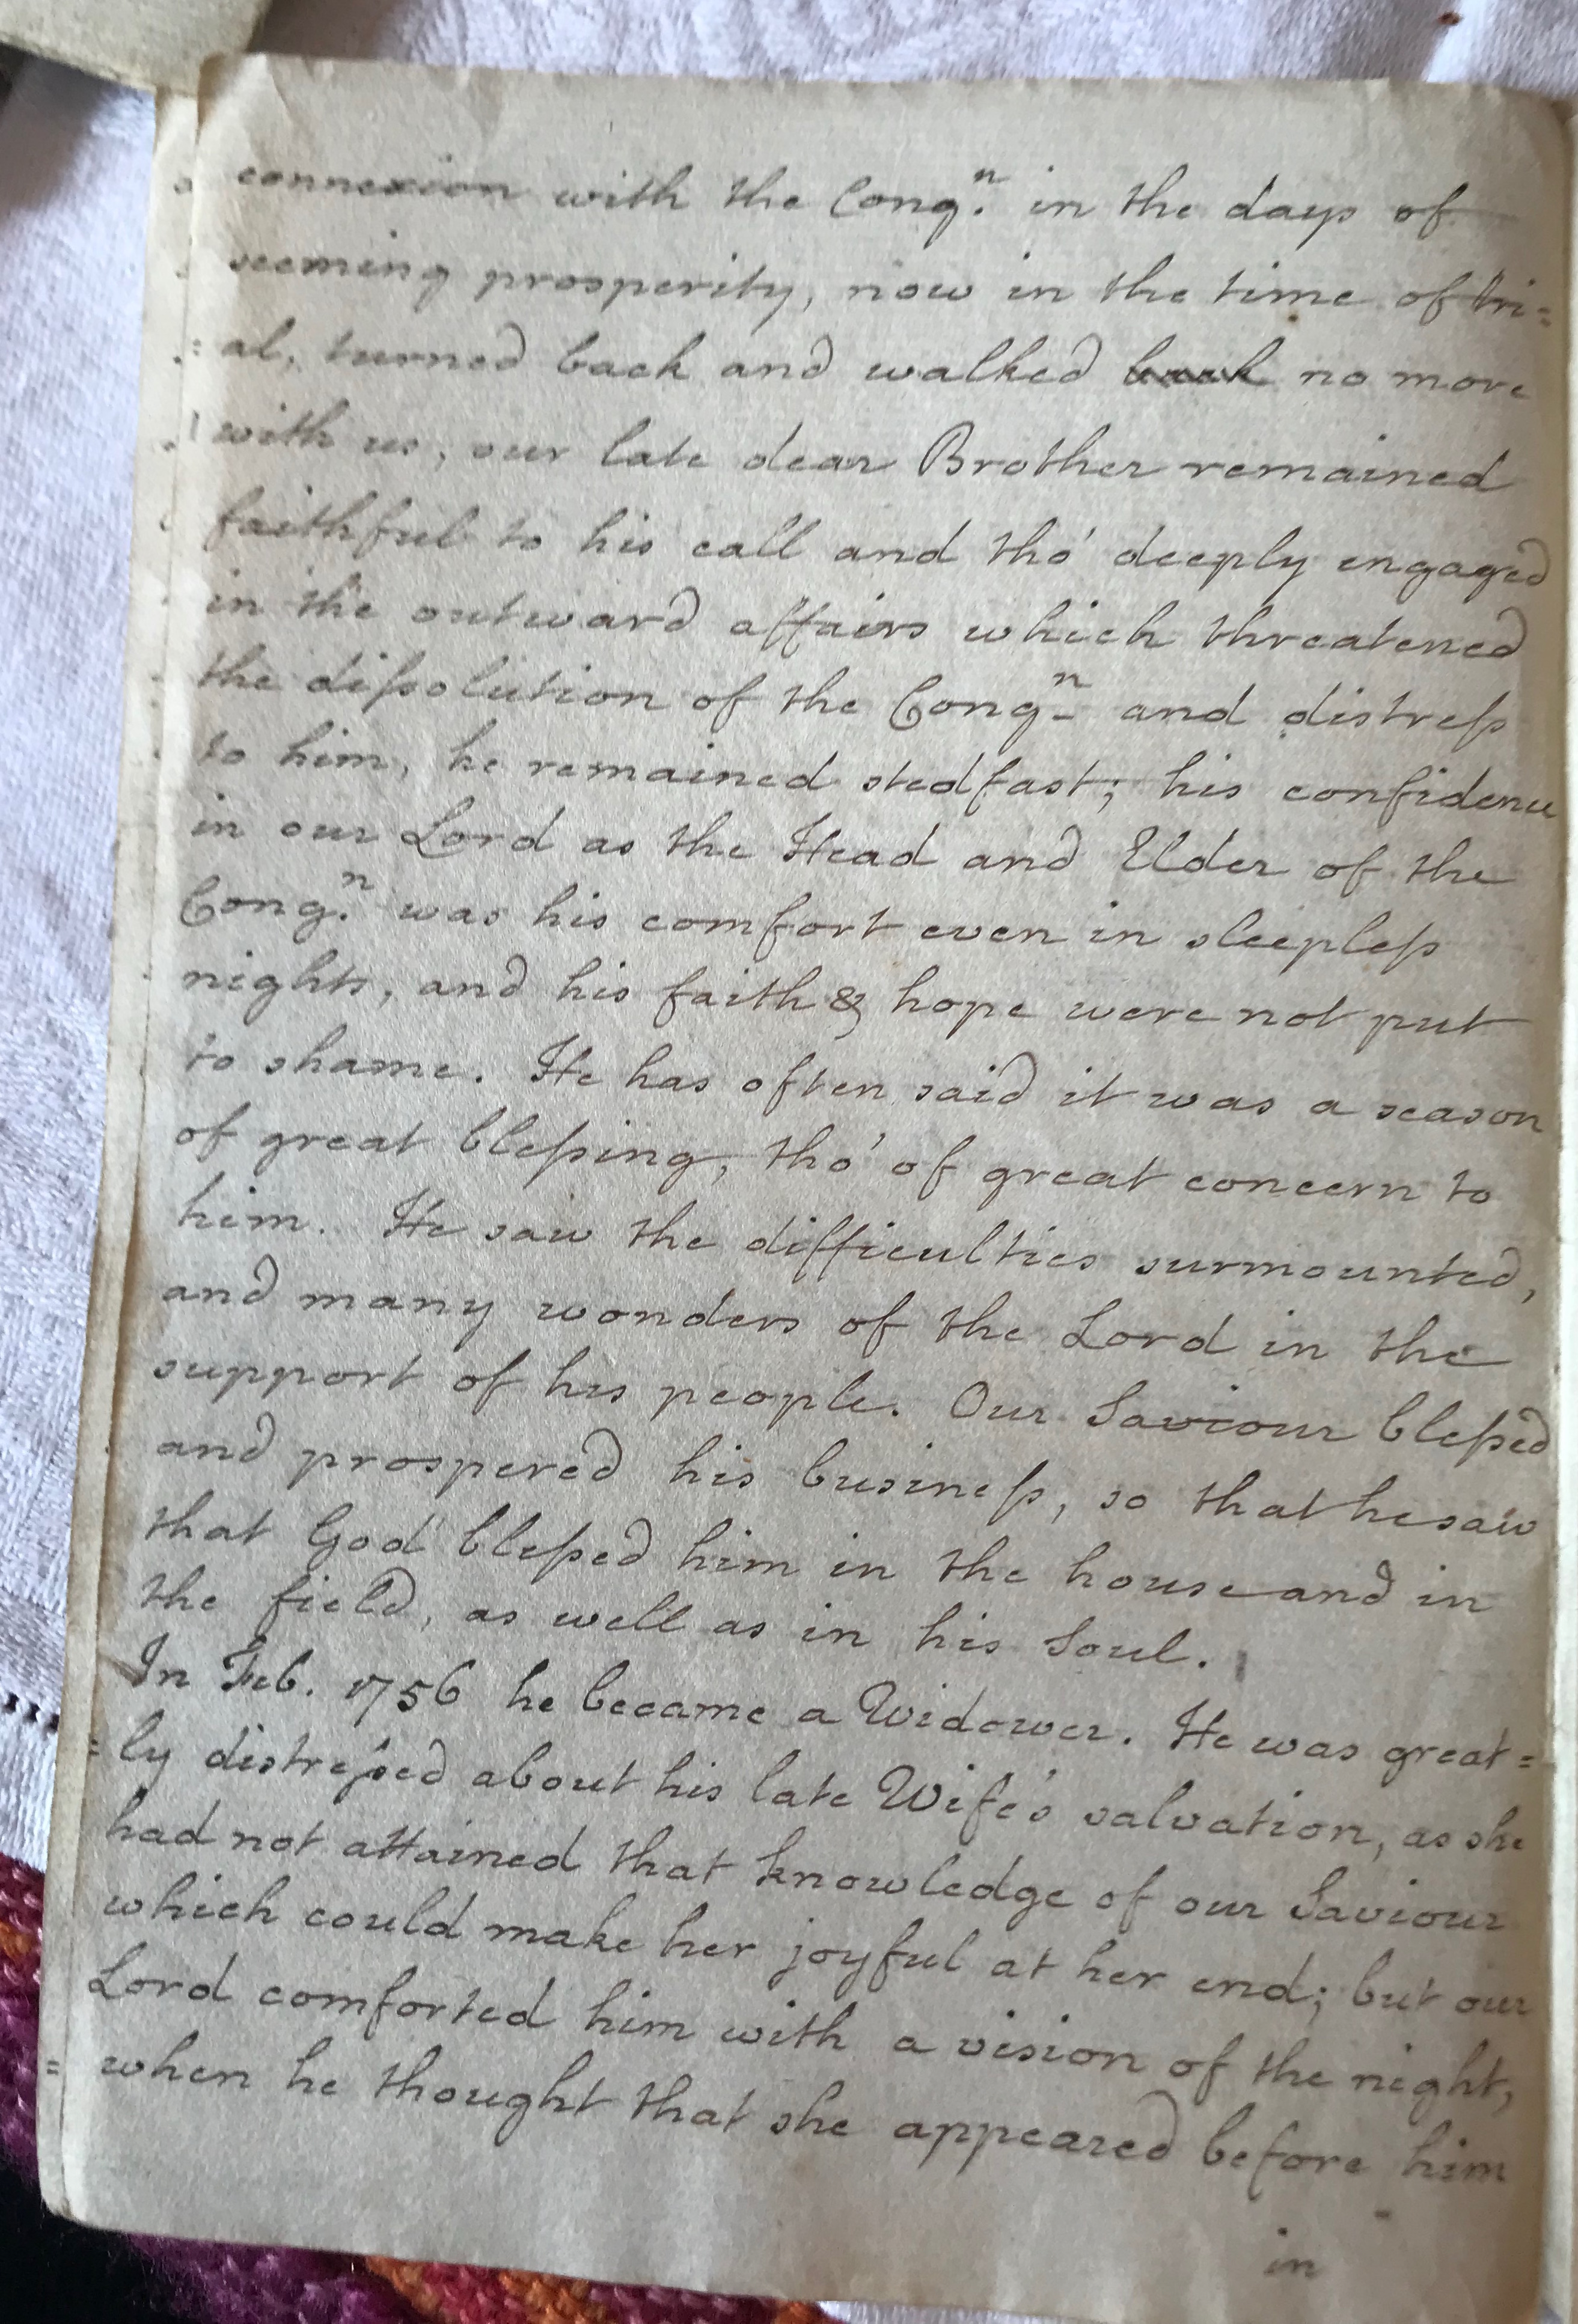 connexion with the Congⁿ. in the days of
seeming prosperity, now in the time of tri=
=al, turned back and walked back no more
with us, our late dear Brother remained
faithful to his call and tho' deeply engaged
in the outward affairs which threatened
the dißolution of the Congⁿ and distreß
to him, he remained stedfast; his confidence
in our Lord as the Head and Elder of the
Congⁿ. was his comfort even in sleepleß
nights, and his faith & hope were not put
to shame. He has often said it was a season
of great bleßing, tho' of great concern to
him. He saw the difficulties surmounted,
and many wonders of the Lord in the
support of his people. Our Saviour bleßed
and prospered his busineß, so that he saw
that God bleßed him in the house and in
the field, as well as in his Soul.
In Feb. 1756 he became a Widower. He was great=
=ly distreßed about his late Wife's salvation, as she
had not attained that knowledge of our Saviour
which could make her joyful at her end; but our
Lord comforted him with a vision of the night,
when he thought that she appeared before him
in